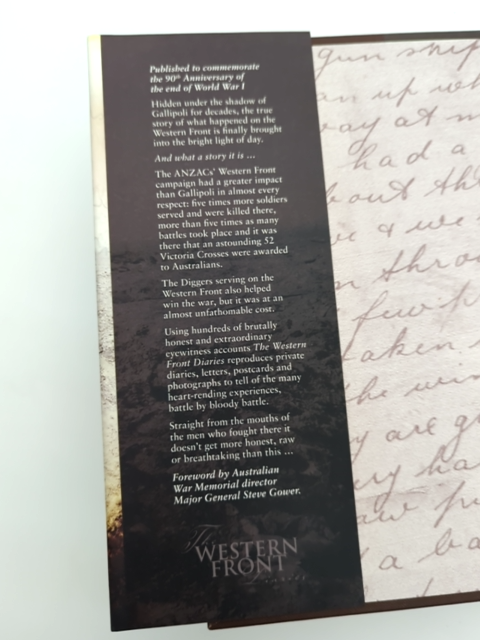 Published to commemorate
the 90th Anniversary of
the end of World War I
Hidden under the shadow of
Gallipoli for decades, the true
story of what happened on the
Western Front is finally brought
into the bright light of day.
And what a story it is ...
The ANZACs' Western Front
campaign had a greater impact
than Gallipoli in almost every
respect: five times more soldiers
served and were killed there,
more than five times as many
battles took place and it was
there that an astounding 52
Victoria Crosses were awarded
to Australians.
The Diggers serving on the
Western Front also helped
win the war, but it was at an
almost unfathomable cost.
Using hundreds of brutally
honest and extraordinary
eyewitness accounts The Western
Front Diaries reproduces private
diaries, letters, postcards and
photographs to tell of the many
heart-rending experiences,
battle by bloody battle.
Straight from the mouths of
the men who fought there it
doesn't get more honest, raw
or breathtaking than this ...
Foreword by Australian
War Memorial director
Major General Steve Gower.
The
WESTERN
FRONT
Diaries
gun ship
up wh
at m
had a
out th
& we
thro
few
taken
he win
are g
ha
aw
a ba